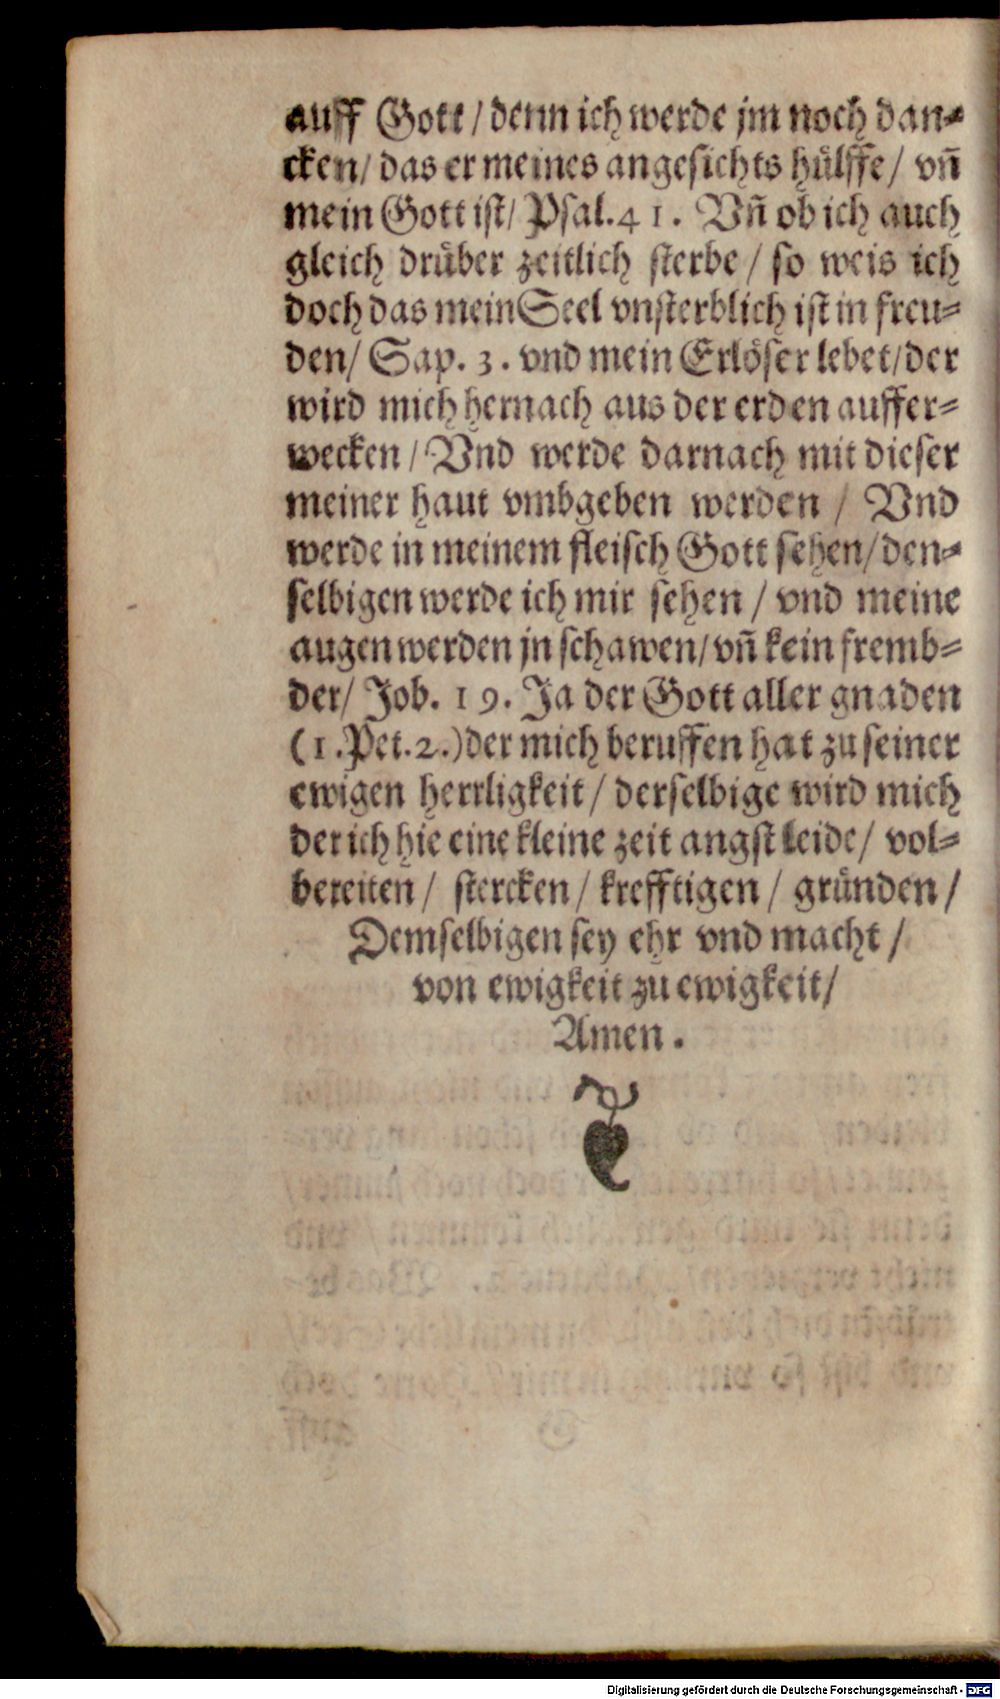 auff Gott / denn ich werde jm noch dan⸗
cken / das er meines angesichts hülffe / vn̄
mein Gott ist / Psal. 41. Vn̄ ob ich auch
gleich drüber zeitlich sterbe / so weis ich
doch das mein Seel vnsterblich ist in freu⸗
den / Sap. 3. vnd mein Erlöser lebet / der
wird mich hernach aus der erden auffer⸗
wecken / Vnd werde darnach mit dieser
meiner haut vmbgeben werden / Vnd
werde in meinem fleisch Gott sehen / den⸗
selbigen werde ich mir sehen / vnd meine
augen werden jn schawen / vn̄ kein fremb⸗
der / Job. 19. Ja der Gott aller gnaden
(1. Pet. 2.) der mich beruffen hat zu seiner
ewigen herrligkeit / derselbige wird mich
der ich hie eine kleine zeit angst leide / vol⸗
bereiten / stercken / krefftigen / gründen /
Demselbigen sey ehr vnd macht /
von ewigkeit zu ewigkeit /
Amen.
Digitalisierung gefördert durch die Deutsche Forschungsgemeinschaft - DFG